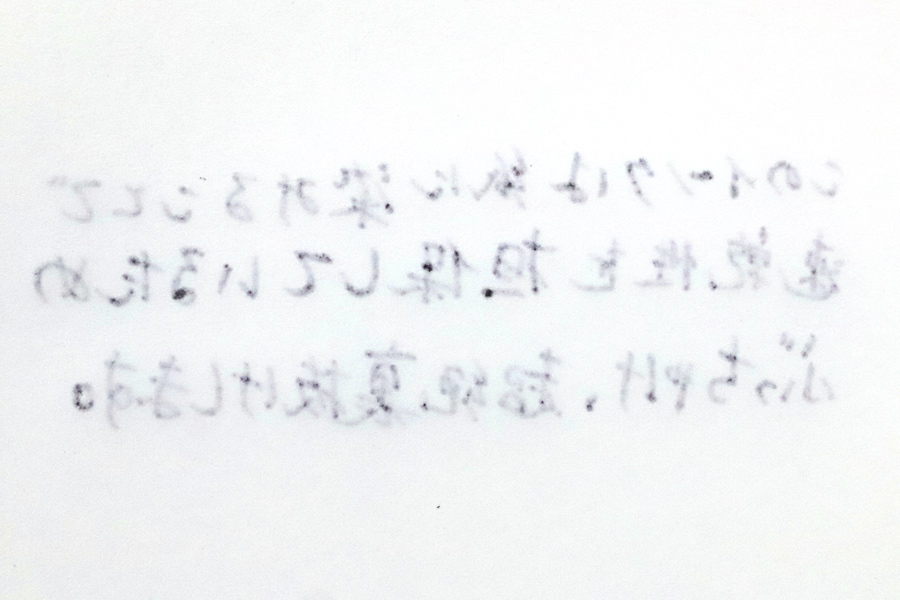 このインクは紙に染みることで
速乾性を担保しているため
ぶっちゃけ、超絶裏抜けします。